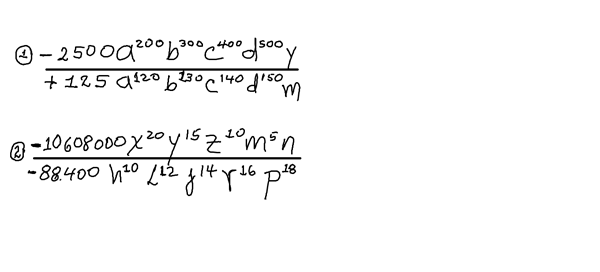 ① -2500a²⁰⁰b³⁰⁰c⁴⁰⁰d⁵⁰⁰y
+125a¹²⁰b¹³⁰c¹⁴⁰d¹⁵⁰m
② -10608000x²⁰y¹⁵z¹⁰m⁵n
-88.400h¹⁰L¹²j¹⁴r¹⁶p¹⁸